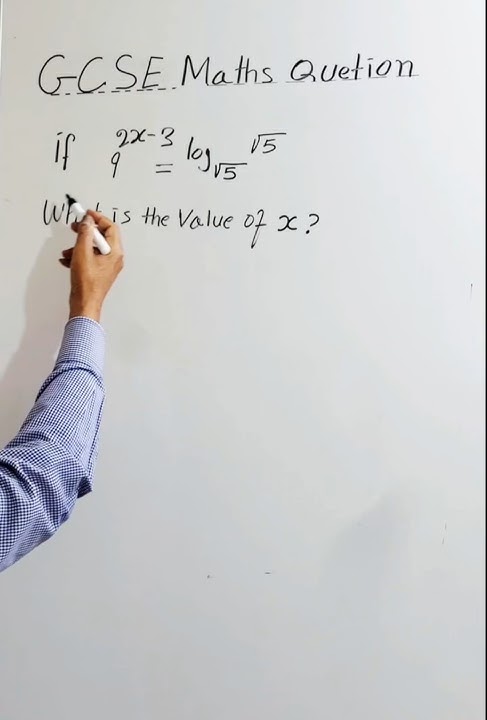 GCSE Maths Quetion
if 9^{2x-3} = log_{√5} √5
What is the Value of x?